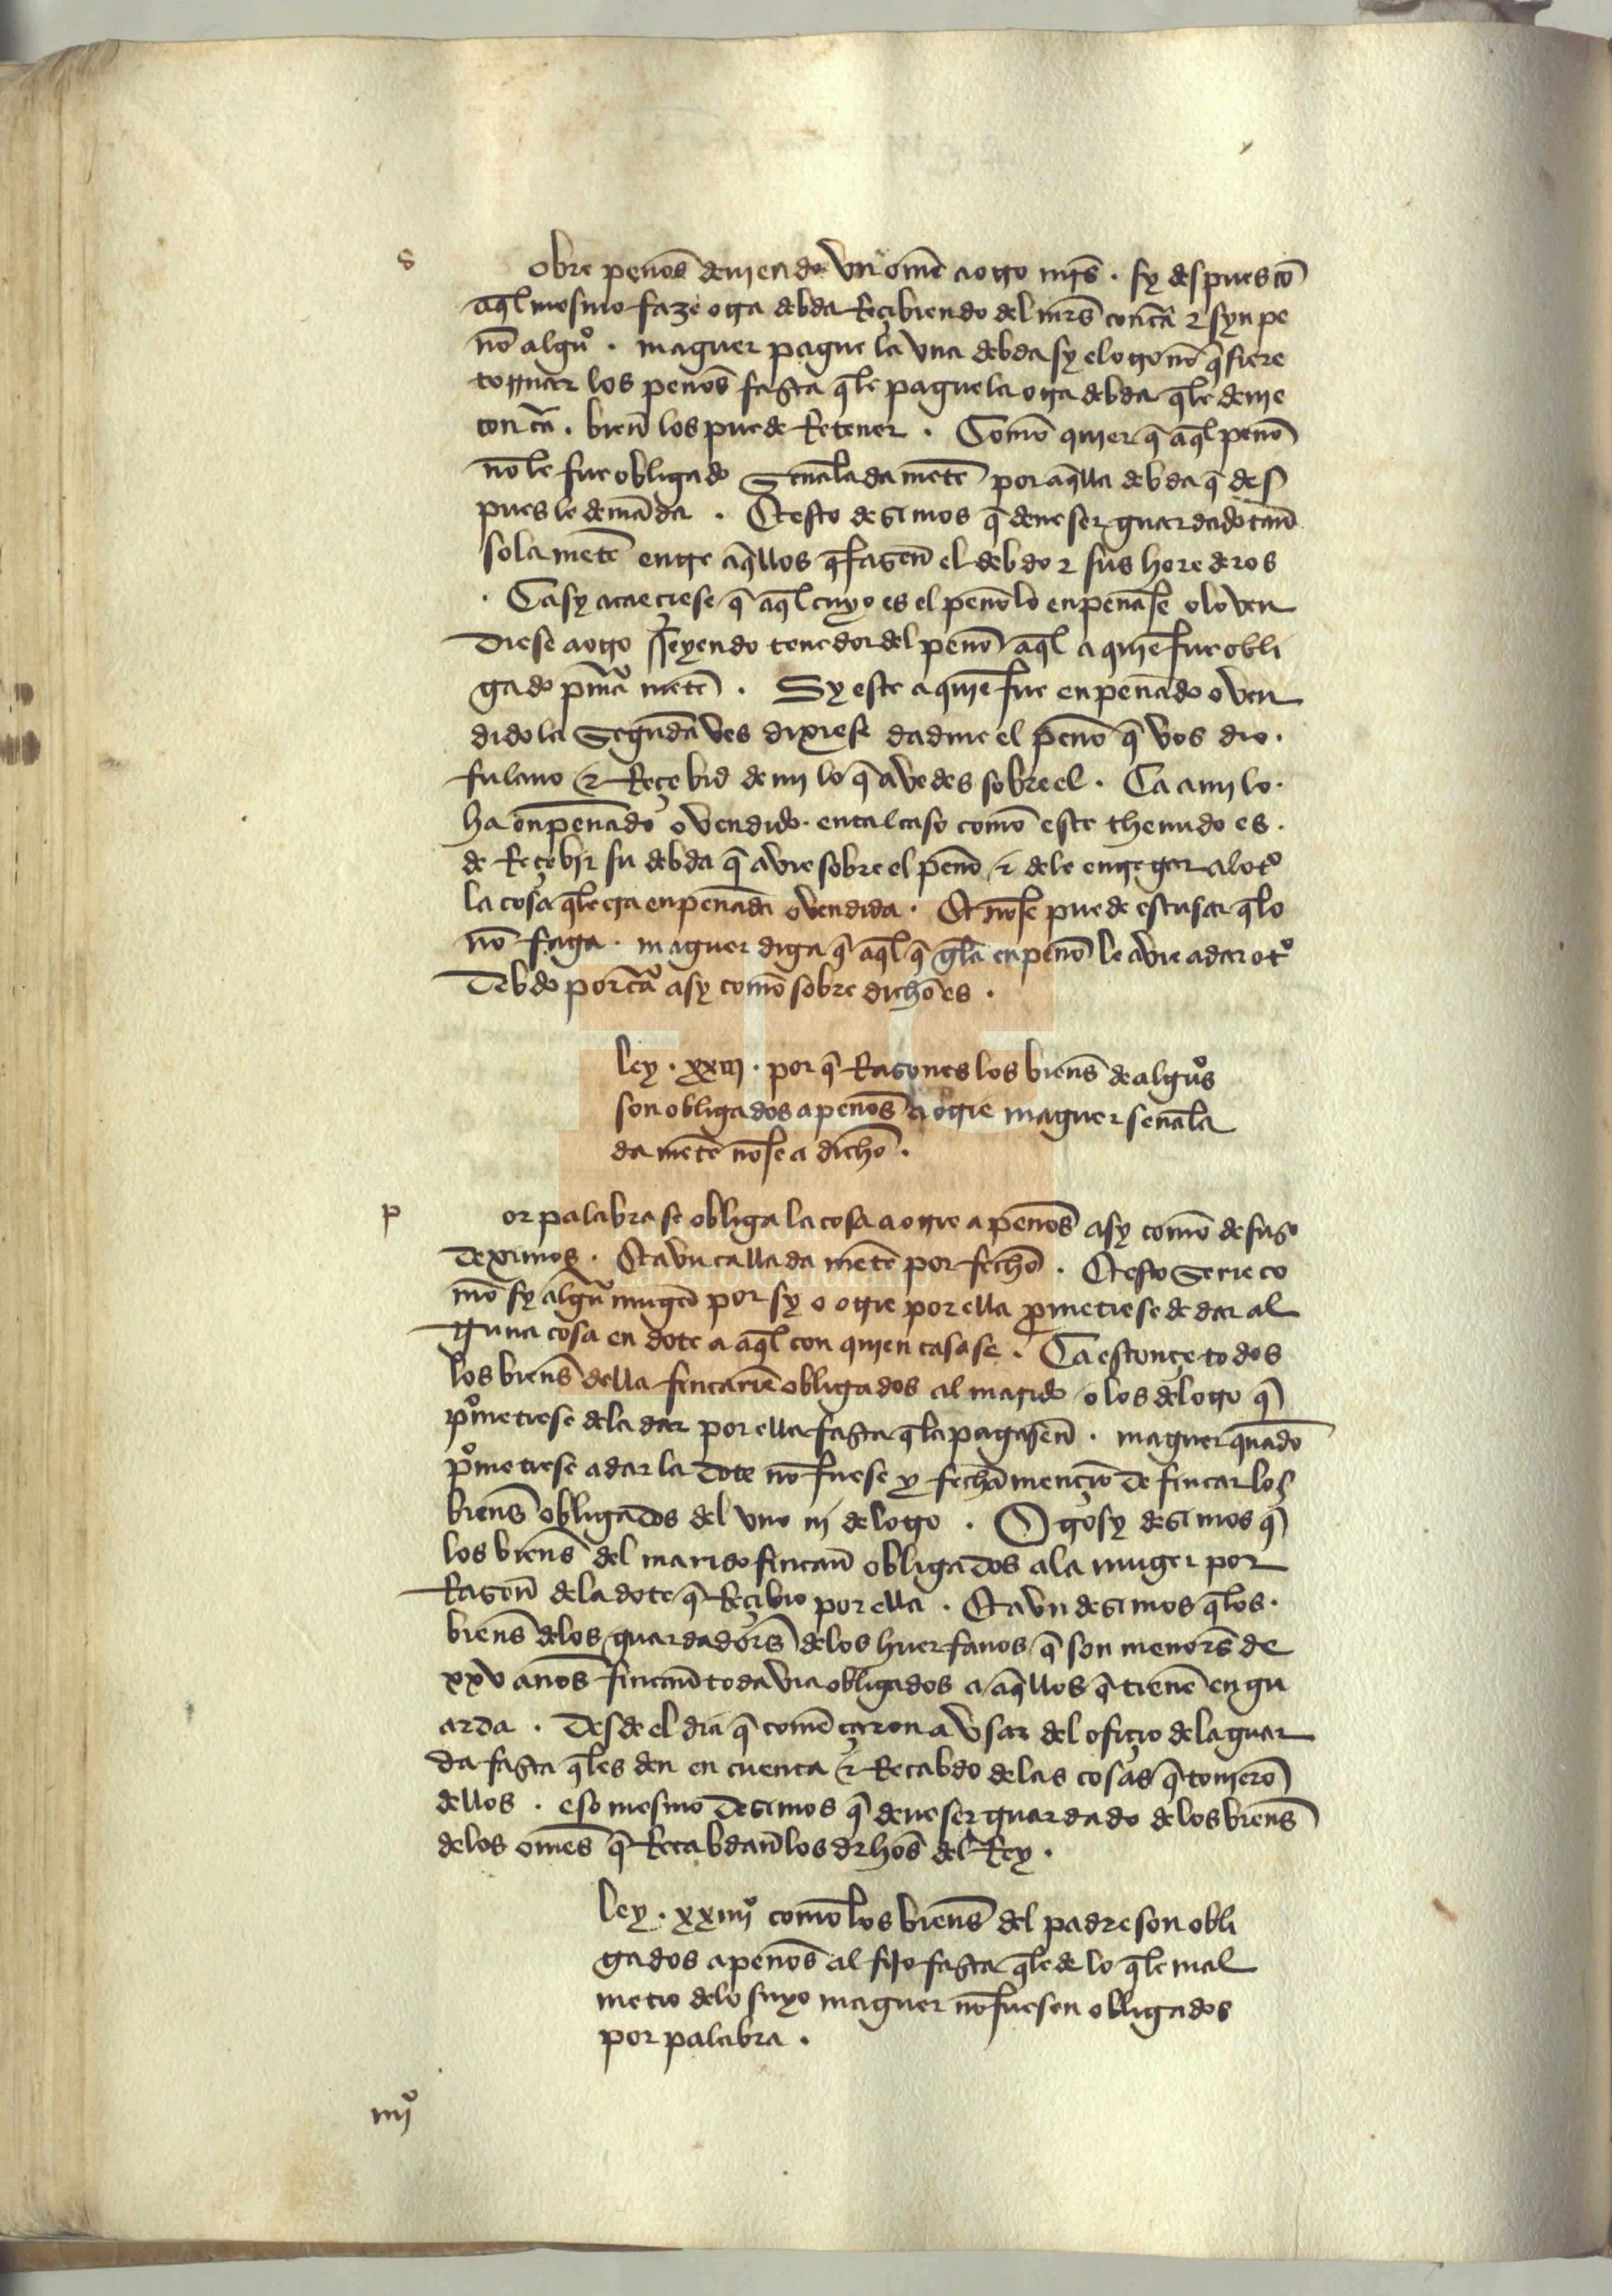 s
obre penos deuiendo vn ome a otro mrs . sy despues co
aql mesmo faze otra debda Recibiendo del mrs con cta & syn pe
no alguo . maguer pague la vna debda sy el otro no qsiere
tornar los penos fasta qle pague la otra debda qle deuie
con cta . bien los puede Retener . Como quier q aql peno
no le fue obligado Senaladamete por aqlla debda q des
pues le demanda . Et esto desimos q deue ser guardado tan
sola mete entre aqllos q fasen el debdo & sus herederos
. Ca sy acaeciese q aql cuyo es el peno lo enpenase o lo ven
diese a otro Seyendo tenedor del peno aql a quie fue obli
gado pmera mete . Sy este a quie fue enpenado o ven
dido la Segunda ves dixiese dadme el peno q vos dio .
fulano & Recebid de mi lo q avedes sobre el . Ca a mi lo .
ha enpenado o vendido . en tal caso como este thenudo es .
de Recebir su debda q avie sobre el peno & de le entregar al otro
la cosa qle era enpenada o vendida . Et nose puede escusar qlo
no faga . maguer diga q aql q gela enpeno le avie a dar otro
debdo por cta asy como sobre dicho es .
Ley . xxiij . por q Rasones los bienes de alguos
son obligados a penos a otrie maguer senala
da mete nose a dicho .
p
or palabra se obliga la cosa a otrie a penos asy como de suso
deximos . Et avn calladamete por fecho . Et esto Serie co
mo sy algua muger por sy o otrie por ella pmetiese de dar al
guna cosa en dote a aql con quien casase . Ca estonce todos
los bienes della fincarie obligados al marido o los del otro q
pometiese dela dar por ella fasta qla pagasen . maguer quado
pometiese a dar la dote no fuese y fecha mencio de fincar los
bienes obligados del vno nj del otro . Otrosy desimos q
los bienes del marido fincan obligados ala muger por
Rason dela dote q Recibio por ella . Et avn desimos qlos .
bienes delos guardadores delos huerfanos q son menores de
xxv anos fincan todavia obligados a aqllos q tiene en gu
arda . Desde el dia q comecaron a vsar del oficio dela guar
da fasta qles den en cuenta & Recabdo delas cosas q touiero
dellos . eso mesmo desimos q deue ser guardado delos bienes
delos omes q Recabdan los drhos del Rey .
Ley . xxiiijo como los bienes del padre son obli
gados a penos al fijo fasta qle de lo qle mal
metio delo suyo maguer no fuesen obligados
por palabra .
iiijo